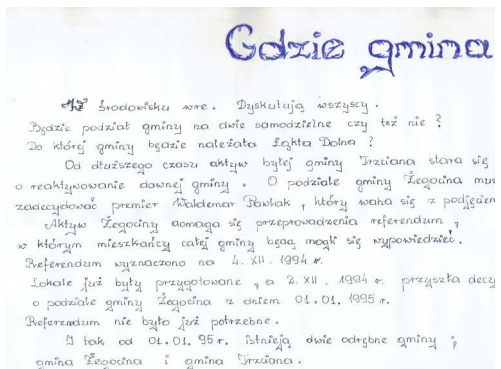 Gdzie gmina
W środowisku wre. Dyskutują wszyscy.
Będzie podział gminy na dwie samodzielne czy też nie?
Do której gminy będzie należała Łąkta Dolna?
Od dłuższego czasu aktyw byłej gminy Trzciana stara się
o reaktywowanie dawnej gminy. O podziale gminy Żegocina mus
zadecydować premier Waldemar Pawlak, który waha się z podjęciem
Aktyw Żegociny domaga się przeprowadzenia referendum,
w którym mieszkańcy całej gminy będą mogli się wypowiedzieć.
Referendum wyznaczono na 4. XII. 1994 r.
Lokale już były przygotowane, a 2. XII. 1994 r. przyszła decy
o podziale gminy Żegocina z dniem 01.01.1995 r.
Referendum nie było już potrzebne.
I tak od 01.01.95 r. istnieją dwie odrębne gminy;
gmina Żegocina i gmina Trzciana.